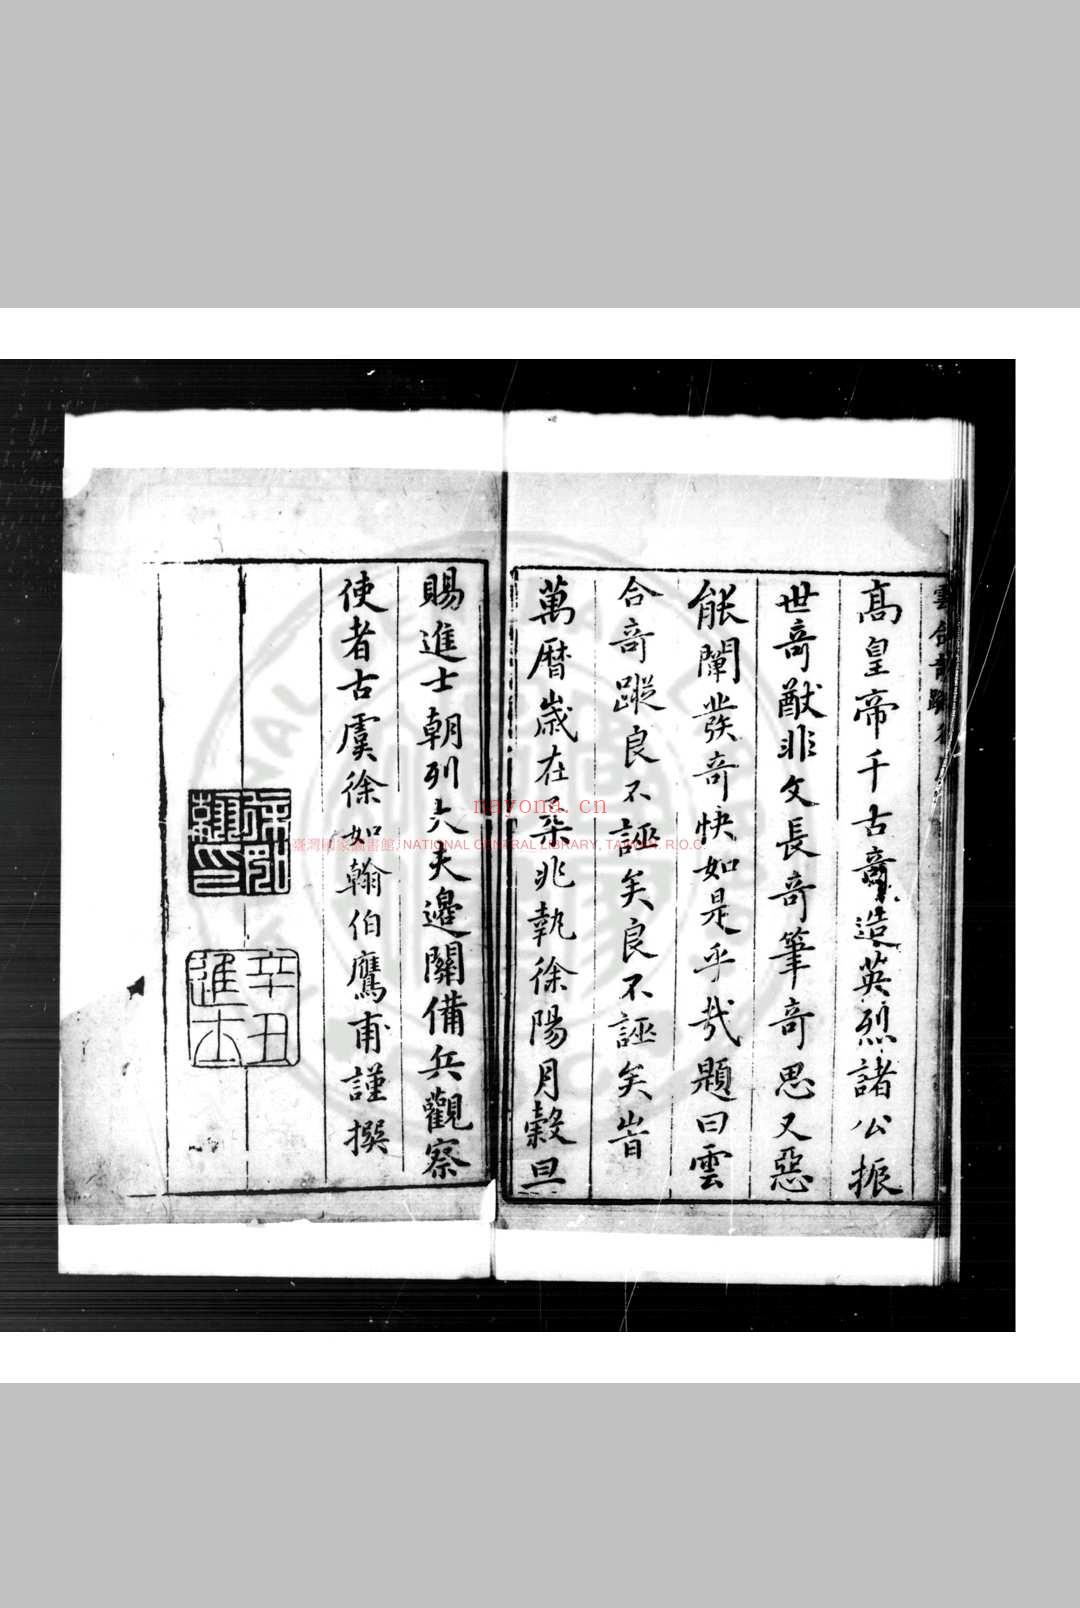 高皇帝千古竒造英烈諸公振
世竒猷非文長竒筆竒思又惡
能闡發竒快如是乎哉題曰雲
合竒蹤良不誣矣良不誣矣旹
萬曆歲在柔兆執徐陽月糓旦
賜進士朝列大夫邊關備兵觀察
使者古虞徐如翰伯鷹甫謹撰
徐如翰印
辛丑進士
nayona.cn
臺灣國家圖書館, NATIONAL CENTRAL LIBRARY, TAIWAN, R.O.C.